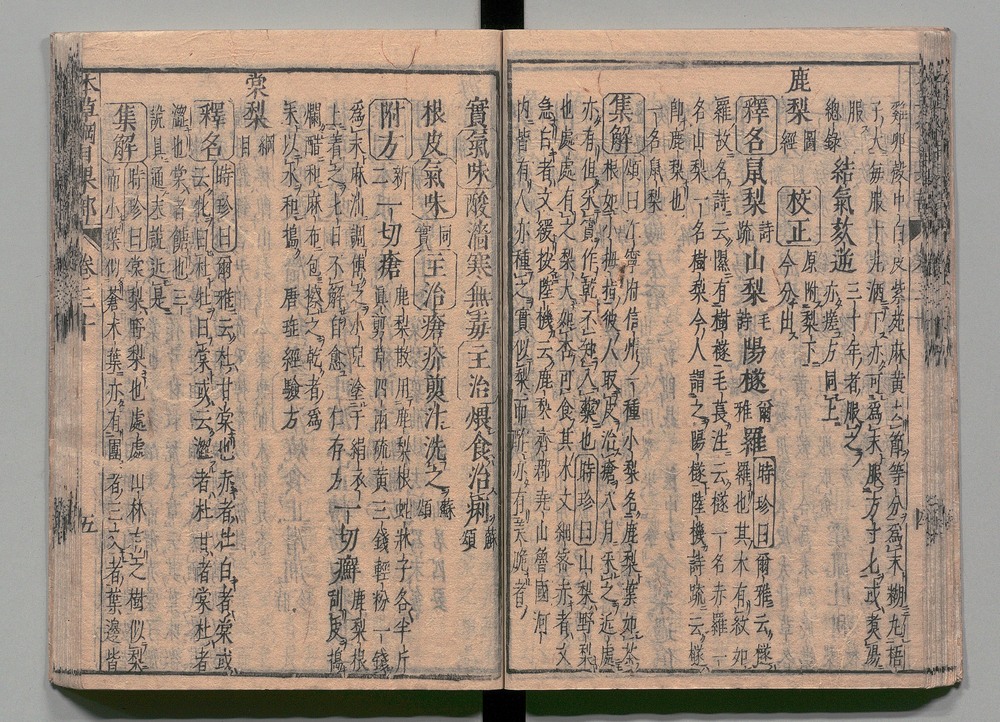 雞卵殼中白皮紫苑麻黃去節等分為末糊丸梧
子大每服十丸酒下亦可為末服方寸七或煮湯
服
總錄 結氣欬逆三十年者服之
亦瘥方同上
鹿梨圖經 校正原附梨下今分出
釋名鼠梨詩疏山梨毛詩陽檖爾雅羅時珍曰爾雅云檖
羅也其木有紋如
羅故名詩云隰有樹檖毛萇注云檖一名赤羅一
名山梨一名樹梨今人謂之陽檖陸機詩疏云檖
即鹿梨也
一名鼠梨
集解頌曰江寧府信州一種小梨名鹿梨葉如茶
根如小拇指彼人取皮治瘡八月采之近處
亦有但采實作乾不知入藥也時珍曰山梨野梨
也處處有之梨大如杏可食其木文細密赤者文
急白者文緩按陸機云鹿梨齊郡堯山魯國河
內皆有人亦種之實似梨而酢亦有美脆者
實氣味酸濇寒無毒主治煨食治痢蘇頌
根皮氣味同實主治瘡疥煎汁洗之蘇頌
附方新二一切瘡鹿梨散用鹿梨根蛇牀子各半斤
真剪草四兩硫黃三錢輕粉一錢
為末麻油調傅之小兒塗于絹衣
上着之七日不解自愈 仁存方 一切癬鹿梨根
刮皮搗
爛醋和麻布包擦之乾者為
末以水和搗 唐瑤經驗方
棠梨綱目
釋名時珍曰爾雅云杜甘棠也赤者杜白者棠或
云牝曰杜牡曰棠或云澀者杜甘者棠杜者
澀也棠者餹也三
說具通末說近是
集解時珍曰棠梨野梨也處處山林有之樹似梨
而小葉似蒼术葉亦有團者三叉者葉邊皆
本草綱目果部 卷三十 五